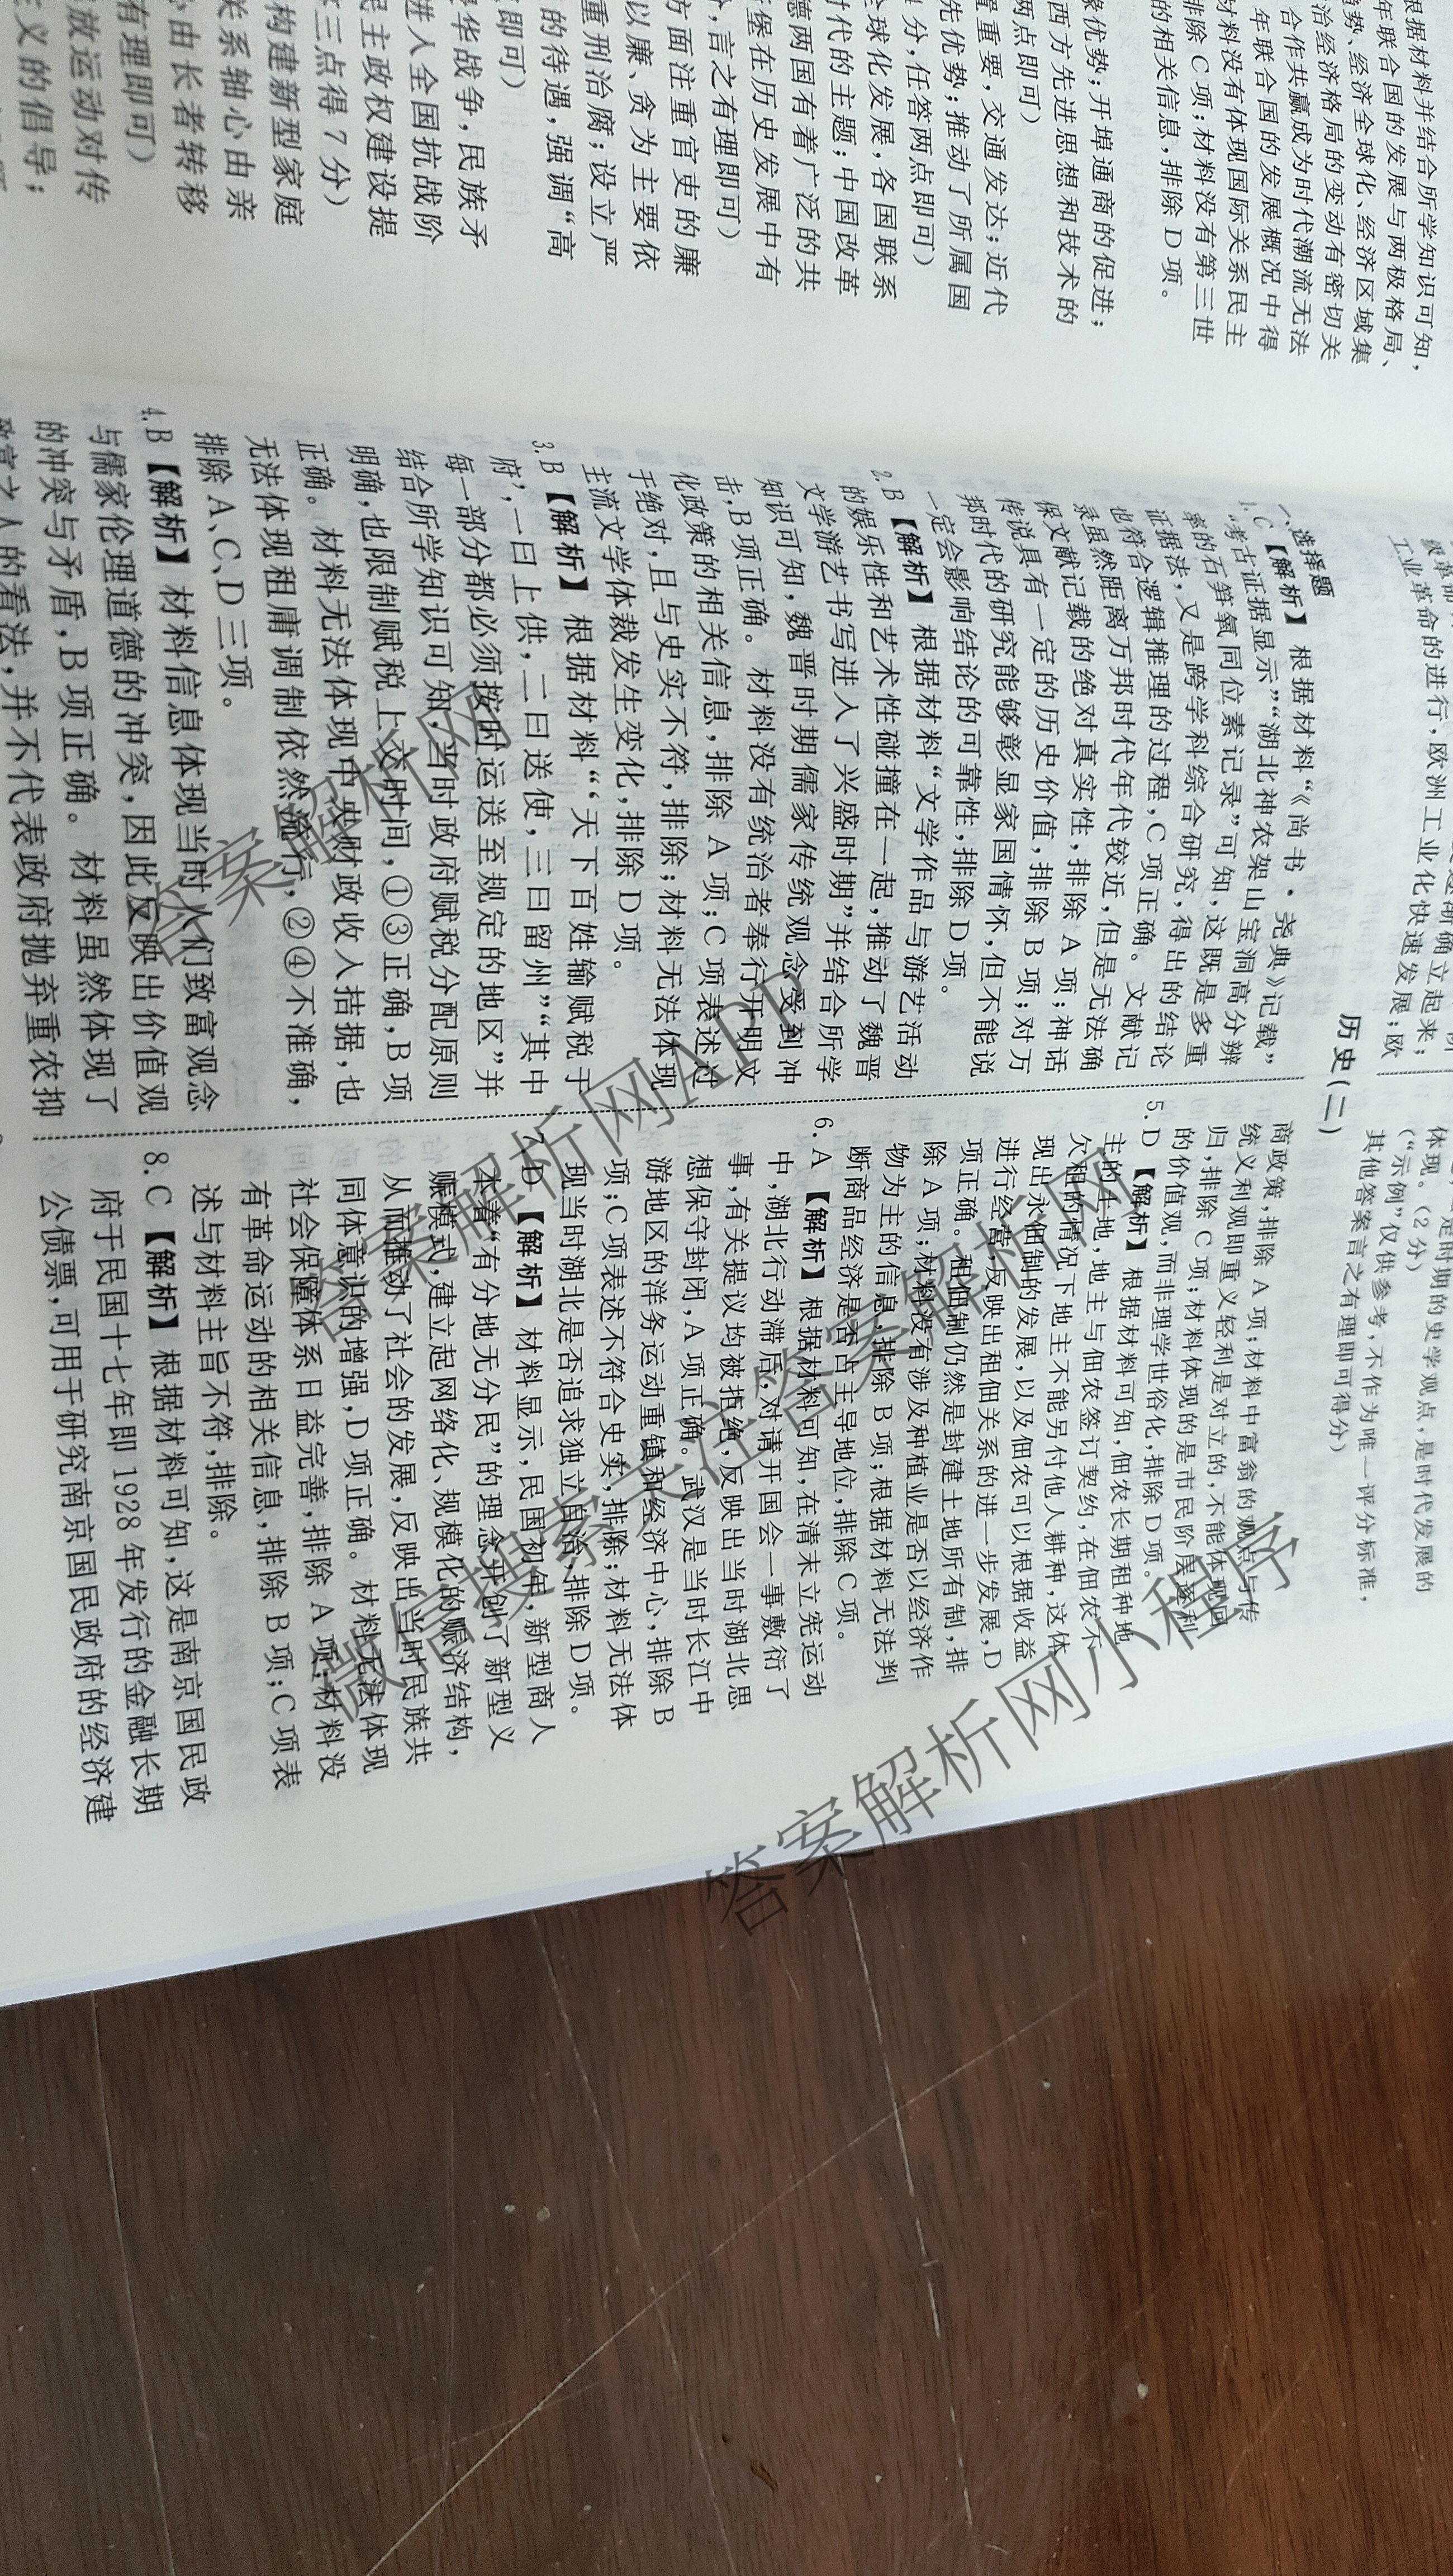 根据材料并结合所学知识可知,
年联合国的发展与两极格局、
趋势、经济全球化、经济区域集
治经济格局的变动有密切关
合作共赢成为时代潮流无法
年联合国的发展概况中得
材料没有体现国际关系民主
排除 C 项;材料没有第三世
的相关信息,排除 D 项。
优势;开埠通商的促进;
西方先进思想和技术的
两点即可)
置重要,交通发达;近代
先优势;推动了所属国
分,任答两点即可)
全球化发展,各国联系
时代的主题;中国改革
德两国有着广泛的共
堡在历史发展中有
言之有理即可)
方面注重官吏的廉
以廉、贪为主要依
重刑治腐;设立严
的待遇,强调“高
即可)
华战争,民族矛
进入全国抗战阶
民主政权建设提
三点得 7 分)
构建新型家庭
关系轴心由亲
心由长者转移
有理即可)
放运动对传
义的倡导;
工业革命的进行,欧洲工业化快速发展;欧
体现。
是时期的史学观点,是时代发展的
(2 分)
(“示例”仅供参考,不作为唯一评分标准,
其他答案言之有理即可得分)
历史(二)
一、选择题
1.C【解析】根据材料“《尚书·尧典》记载”
“考古证据显示”“湖北神农架山宝洞高分辨
率的石笋氧同位素记录”可知,这既是多重
证据法,又是跨学科综合研究,得出的结论
也符合逻辑推理的过程,C 项正确。文献记
录虽然距离万邦时代年代较近,但是无法确
保文献记载的绝对真实性,排除 A 项;神话
传说具有一定的历史价值,排除 B 项;对万
邦时代的研究能够彰显家国情怀,但不能说
一定会影响结论的可靠性,排除 D 项。
2.B【解析】根据材料“文学作品与游艺活动
的娱乐性和艺术性碰撞在一起,推动了魏晋
文学游艺书写进入了兴盛时期”并结合所学
知识可知,魏晋时期儒家传统观念受到冲
击,B 项正确。材料没有统治者奉行开明文
化政策的相关信息,排除 A 项;C 项表述过
于绝对,且与史实不符,排除;材料无法体现
主流文学体裁发生变化,排除 D 项。
3.B【解析】根据材料“‘天下百姓输赋税于
府’,一曰上供,二曰送使,三曰留州”“其中
每一部分都必须按时运送至规定的地区”并
结合所学知识可知,当时政府赋税分配原则
明确,也限制赋税上交时间,①③正确,B 项
正确。材料无法体现中央财政收入拮据,也
无法体现租庸调制依然流行,②④不准确,
排除 A、C、D 三项。
4.B【解析】材料信息体现当时人们致富观念
与儒家伦理道德的冲突,因此反映出价值观
的冲突与矛盾,B 项正确。材料虽然体现了
致富之人的看法,并不代表政府抛弃重农抑
商政策,排除 A 项;材料中富翁的观点与传
统义利观即重义轻利是对立的,不能体现回
归,排除 C 项;材料体现的是市民阶层逐利
的价值观,而非理学世俗化,排除 D 项。
5.D【解析】根据材料可知,佃农长期租种地
主的土地,地主与佃农签订契约,在佃农不
欠租的情况下地主不能另付他人耕种,这体
现出永佃制的发展,以及佃农可以根据收益
进行经营,反映出租佃关系的进一步发展,D
项正确。租佃制仍然是封建土地所有制,排
除 A 项;材料没有涉及种植业是否以经济作
物为主的信息,排除 B 项;根据材料无法判
断商品经济是否占主导地位,排除 C 项。
6.A【解析】根据材料可知,在清末立宪运动
中,湖北行动滞后,对请开国会一事敷衍了
事,有关提议均被拒绝,反映出当时湖北思
想保守封闭,A 项正确。武汉是当时长江中
游地区的洋务运动重镇和经济中心,排除 B
项;C 项表述不符合史实,排除;材料无法体
现当时湖北是否追求独立自治,排除 D 项。
7.D【解析】材料显示,民国初年,新型商人
本着“有分地无分民”的理念开创了新型义
赈模式,建立起网络化、规模化的赈济结构,
从而推动了社会的发展,反映出当时民族共
同体意识的增强,D 项正确。材料无法体现
社会保障体系日益完善,排除 A 项;材料没
有革命运动的相关信息,排除 B 项;C 项表
述与材料主旨不符,排除。
8.C【解析】根据材料可知,这是南京国民政
府于民国十七年即 1928 年发行的金融长期
公债票,可用于研究南京国民政府的经济建
答案解析网
答案解析网APP
微信搜索关注答案解析网
答案解析网小程序